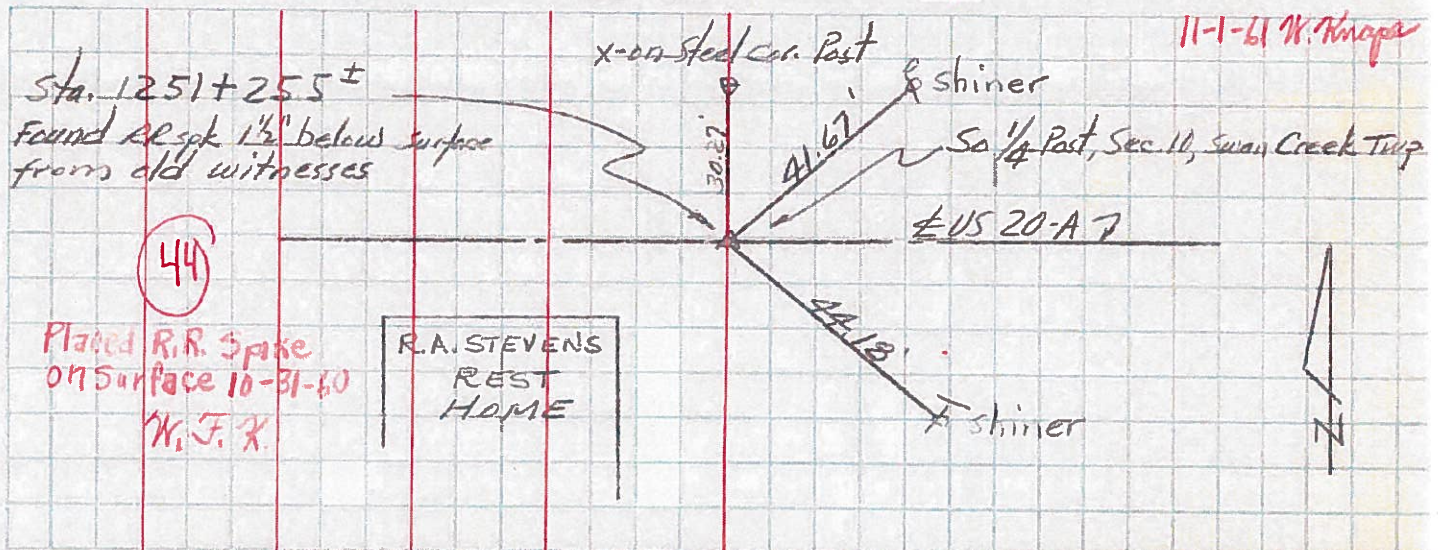 11-1-61 W. Knapp
x-on-steel cor. Post
shiner
Sta. 1251+25.5±
Found RR spk 1½" below surface
from old witnesses
30.27'
41.67'
So ¼ Post, Sec. 10, Swan Creek Twp
℄ US 20-A
44
44.18'
Placed R.R. Spike
on Surface 10-31-60
W. F. K.
R.A. STEVENS
REST
HOME
shiner
N